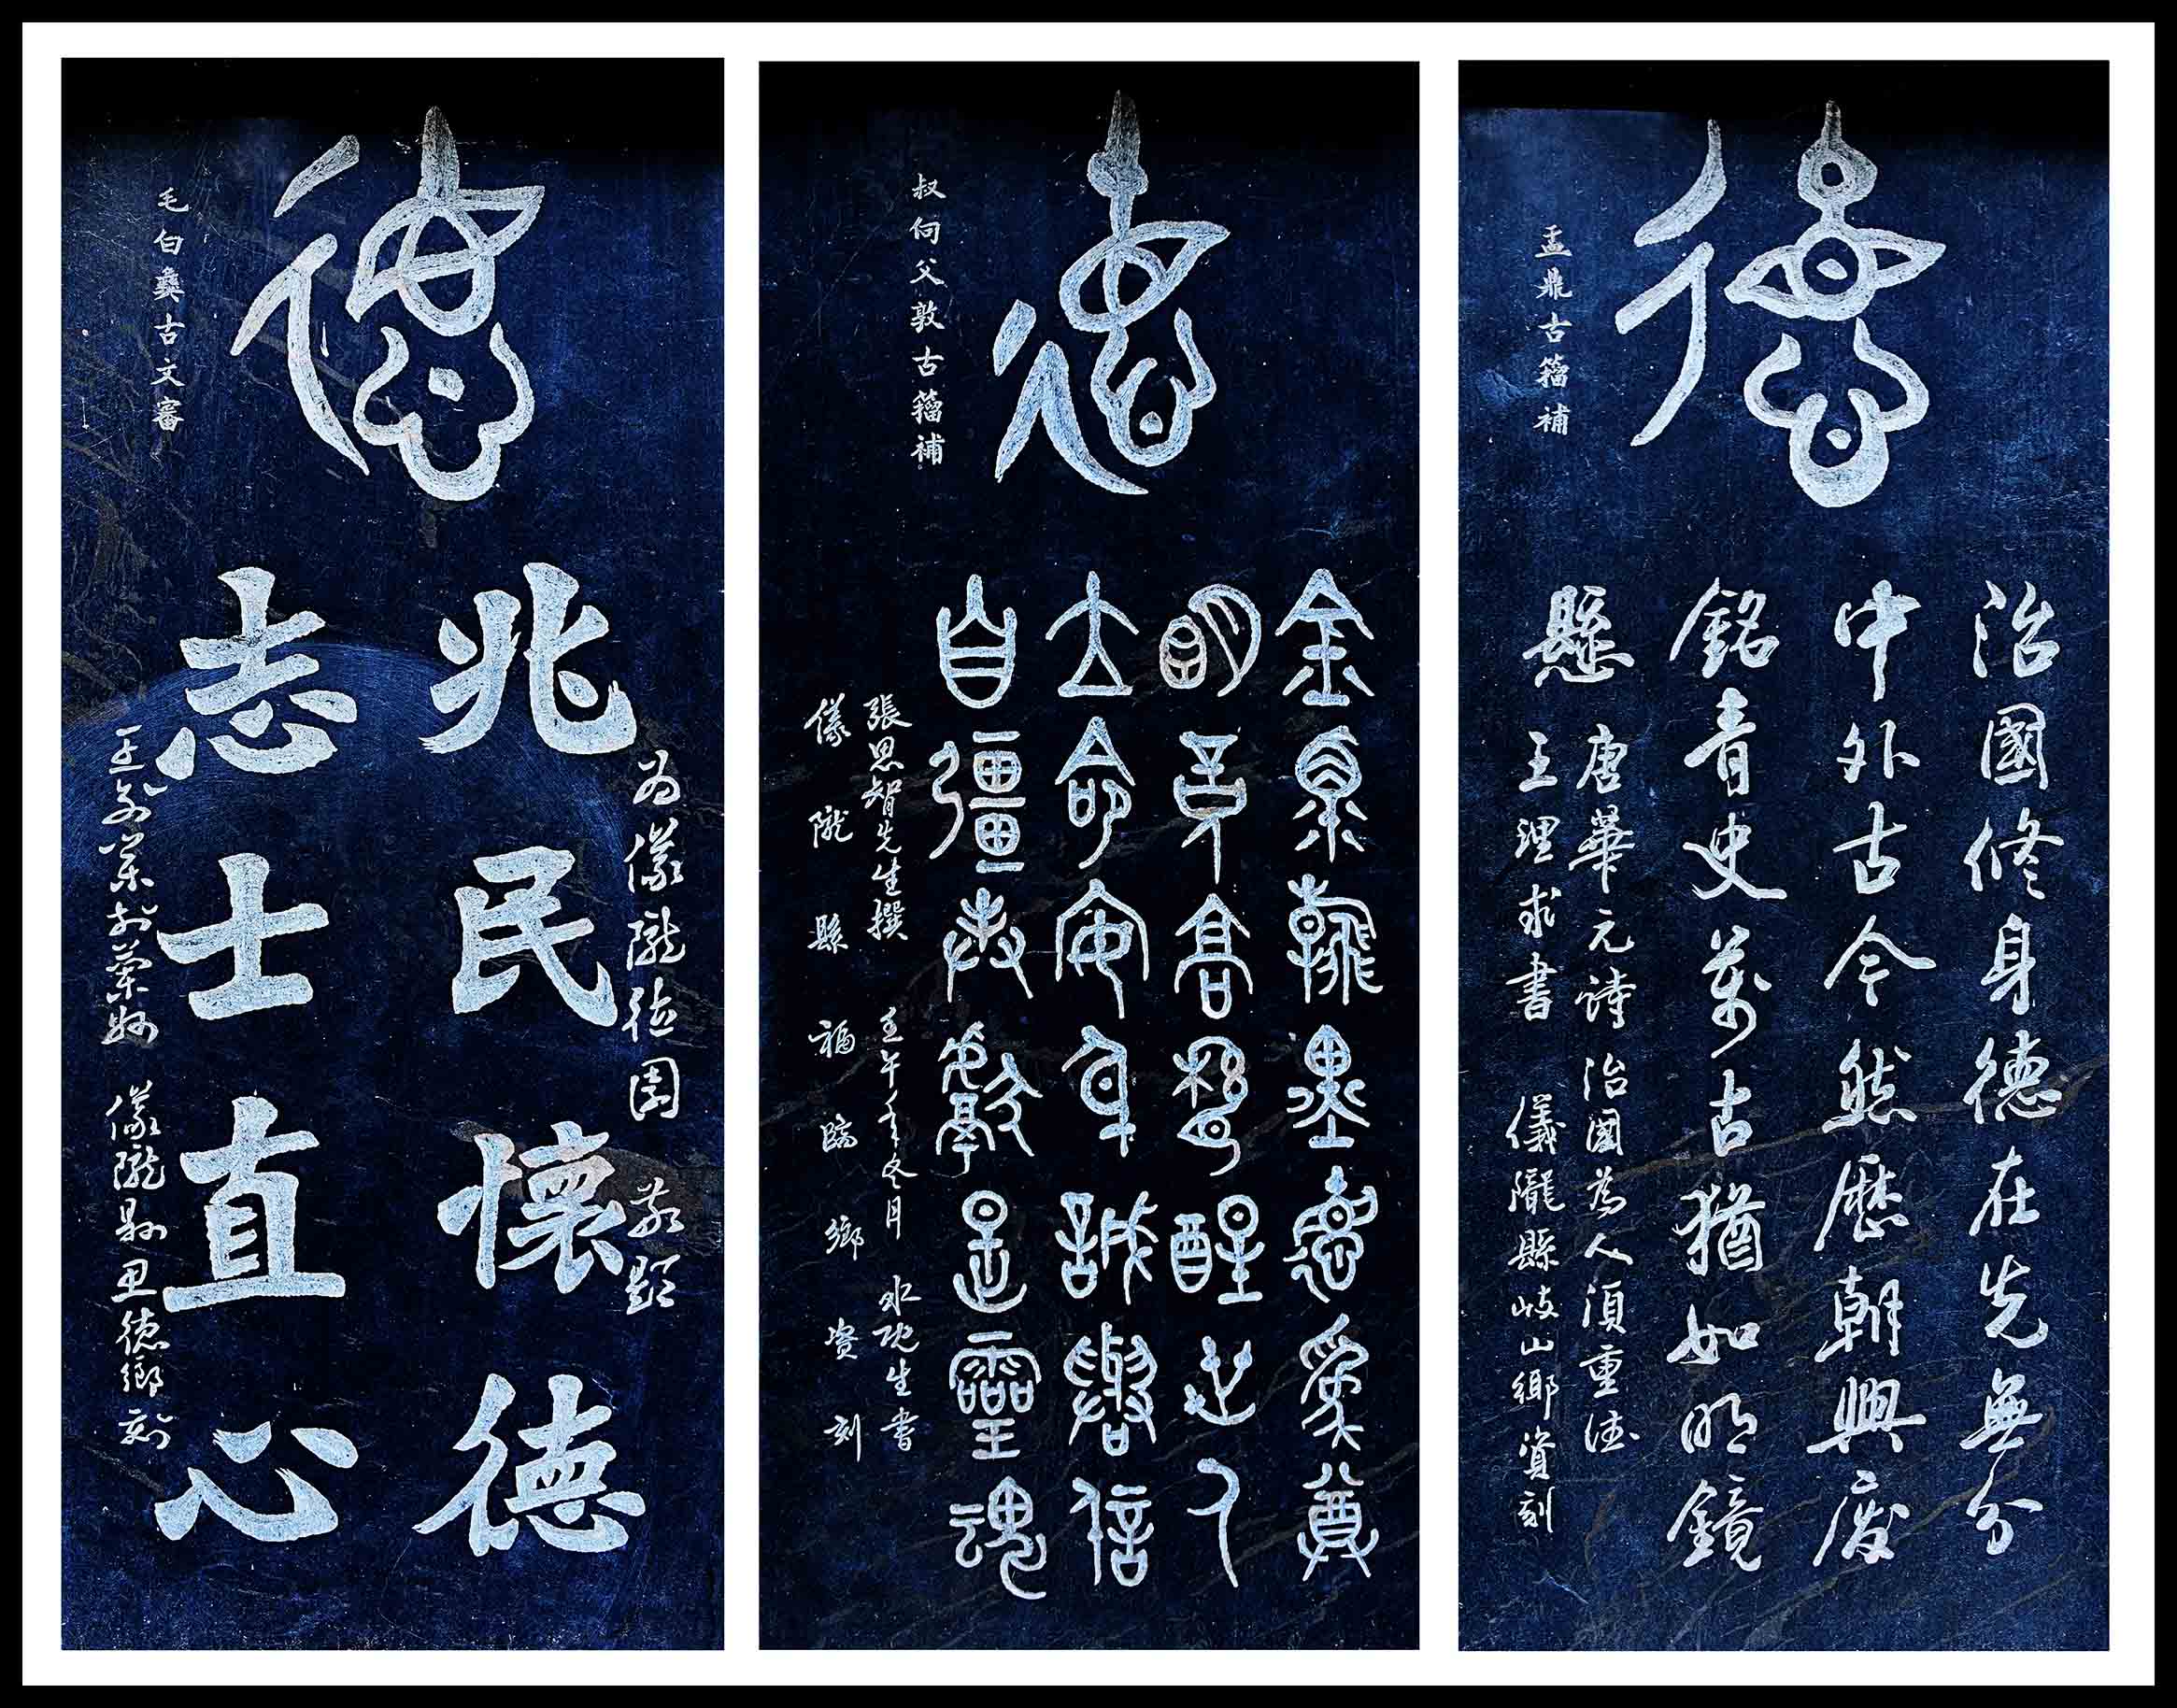 德
盂鼎古籀補
治國修身德在先無分
中外古今然歷朝興廢
銘青史萬古猶如明鏡
懸
唐華元詩 治國為人須重德
王理求書 儀隴縣岐山鄉資刻
德
叔向父敦古籀補
金泉翰墨惠愛尊
明高醒人
立命安身誠與信
自彊是靈魂
張思智先生撰 壬午年冬月 生書
儀隴縣福臨鄉資刻
德
毛白彝古文審
為儀隴德園 敬題
兆民懷德
志士直心
儀隴縣思德鄉刻